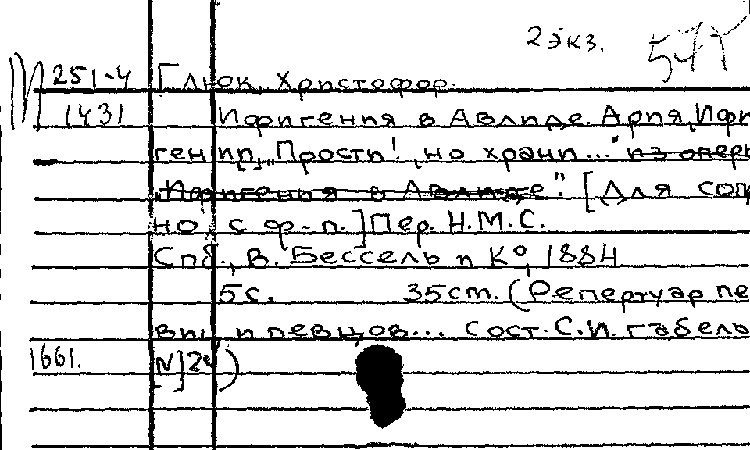 2 экз. 571
251-4 Глюк, Христофор.
1431 Ифигения в Авлиде. Ария Ифи
гении „Прости!, но храни..." из опер
„Ифигения в Авлиде". [Для соп
но с ф-п.] Пер. Н.М.С.
Спб., В. Бессель и К°, 1884
5 с. 35 cm. (Репертуар пе
виц и певцов... Сост. С.И. Габель
1661. [N] 24)